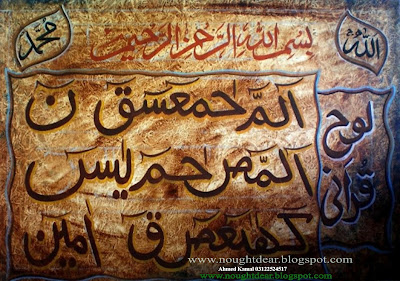 الله
بسم الله الرحمن الرحيم
محمد
لوح
قرآنی
الٓمّٓ حمعسق ن
الٓمّٓص حم یس
كهيعص ق امين
www.noughtdear.blogspot.com
Ahmed Kamal 03122524517
www.noughtdear.blogspot.com